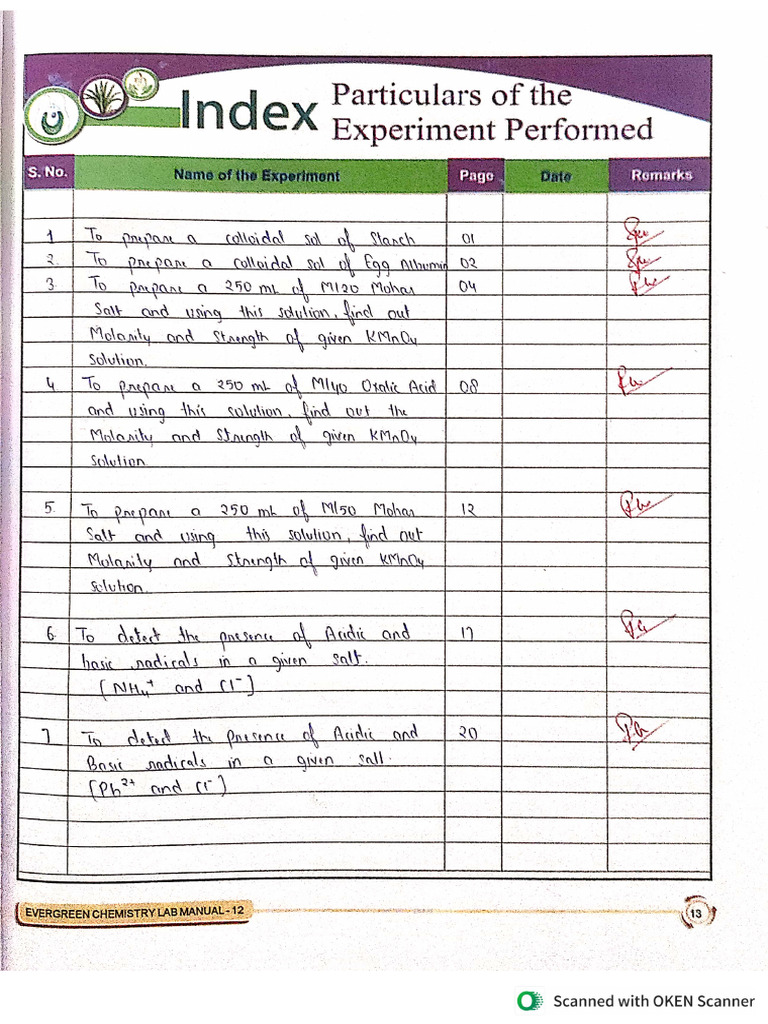 Index Particulars of the
Experiment Performed
S. No. Name of the Experiment Page Date Remarks
1 To prepare a colloidal sol of Starch 01
2. To prepare a colloidal sol of Egg Albumin 02
3. To prepare a 250 mL of M/20 Mohar 04
Salt and using this solution, find out
Molarity and Strength of given KMnO4
Solution.
4 To prepare a 250 mL of M/40 Oxalic Acid 08
and using this solution, find out the
Molarity and Strength of given KMnO4
Solution
5. To prepare a 250 mL of M/50 Mohar 12
Salt and using this solution, find out
Molarity and Strength of given KMnO4
Solution.
6. To detect the presence of Acidic and 17
basic radicals in a given salt.
(NH4+ and Cl-)
7 To detect the presence of Acidic and 20
Basic radicals in a given salt.
(Pb2+ and Cl-)
EVERGREEN CHEMISTRY LAB MANUAL - 12
13
Scanned with OKEN Scanner